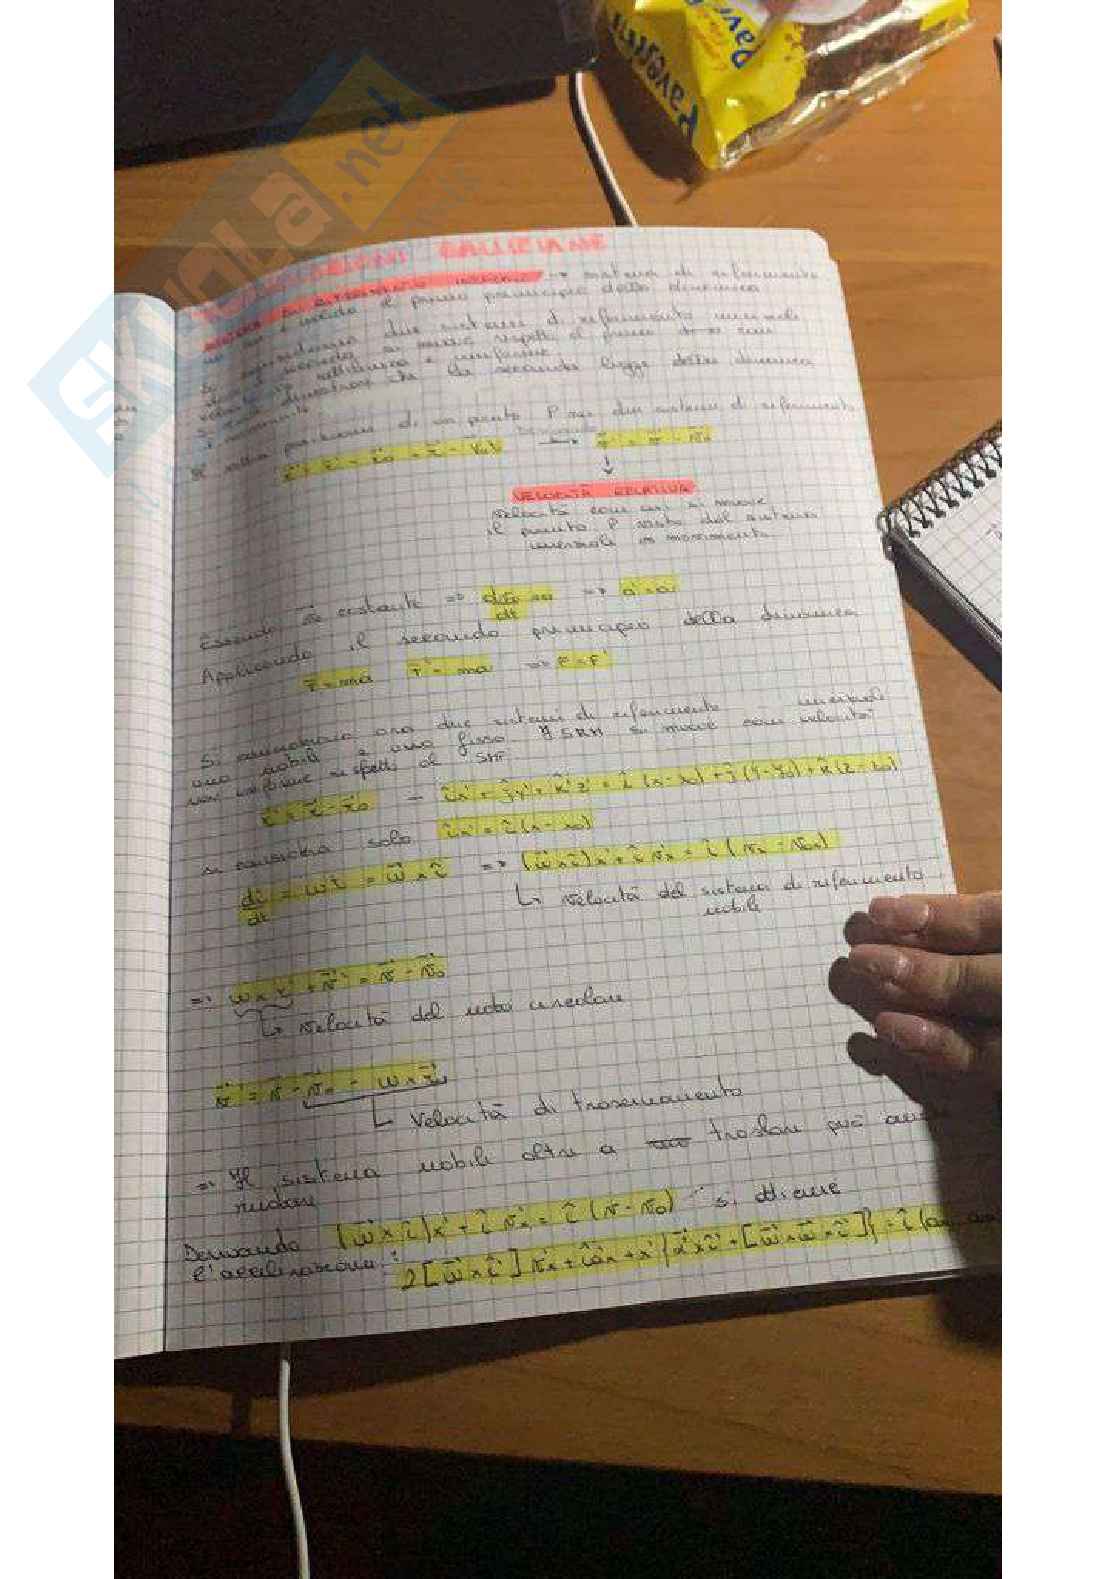 Pavesini
SKUOLA.net
GALILEIANE
SISTEMA DI RIFERIMENTO INERZIALE → sistema di riferimento
è valido il primo principio della dinamica
due sistemi di riferimento inerziali
si muove rispetto al primo con
rettilinea e uniforme
dimostrare che la seconda legge della dinamica
posizione di un punto P nei due sistemi di riferimento
r⃗' = r⃗ - r⃗₀ = r⃗ - v⃗₀t Derivando → v⃗' = v⃗ - v⃗₀
↓
VELOCITÀ RELATIVA
velocità con cui si muove
il punto P visto dal sistema
inerziale in movimento
Essendo v⃗₀ costante => dv₀/dt = 0 => a' = a
Applicando il secondo principio della dinamica
F = ma F' = ma => F = F'
Si considerano ora due sistemi di riferimento inerziali
uno mobile e uno fisso. Il SRM si muove con velocità
non uniforme rispetto al SRF.
r⃗' = r⃗ - r⃗₀ - îx' + ĵy' + k̂'z' = î(x - x₀) + ĵ(y - y₀) + k̂(z - z₀)
si considera solo îx' = î(x - x₀)
dî/dt = ωî = ω⃗ × î => (ω⃗ × î)x' + î vₓ = î(vₓ - v₀ₓ)
↳ velocità del sistema di riferimento
mobile
=> ω × r⃗' + v⃗' = v⃗ - v⃗₀
↳ velocità del moto circolare
v⃗' = v⃗ - v⃗₀ - ω × r⃗
↳ Velocità di trascinamento
=> Il sistema mobile oltre a traslare può anche
ruotare
Derivando (ω⃗ × î)x' + î vₓ = î(v - v₀) si ottiene
l'accelerazione:
2[ω⃗ × î']vₓ + îaₓ + x'{α⃗ × î + [ω⃗ × ω⃗ × î]} = î(a